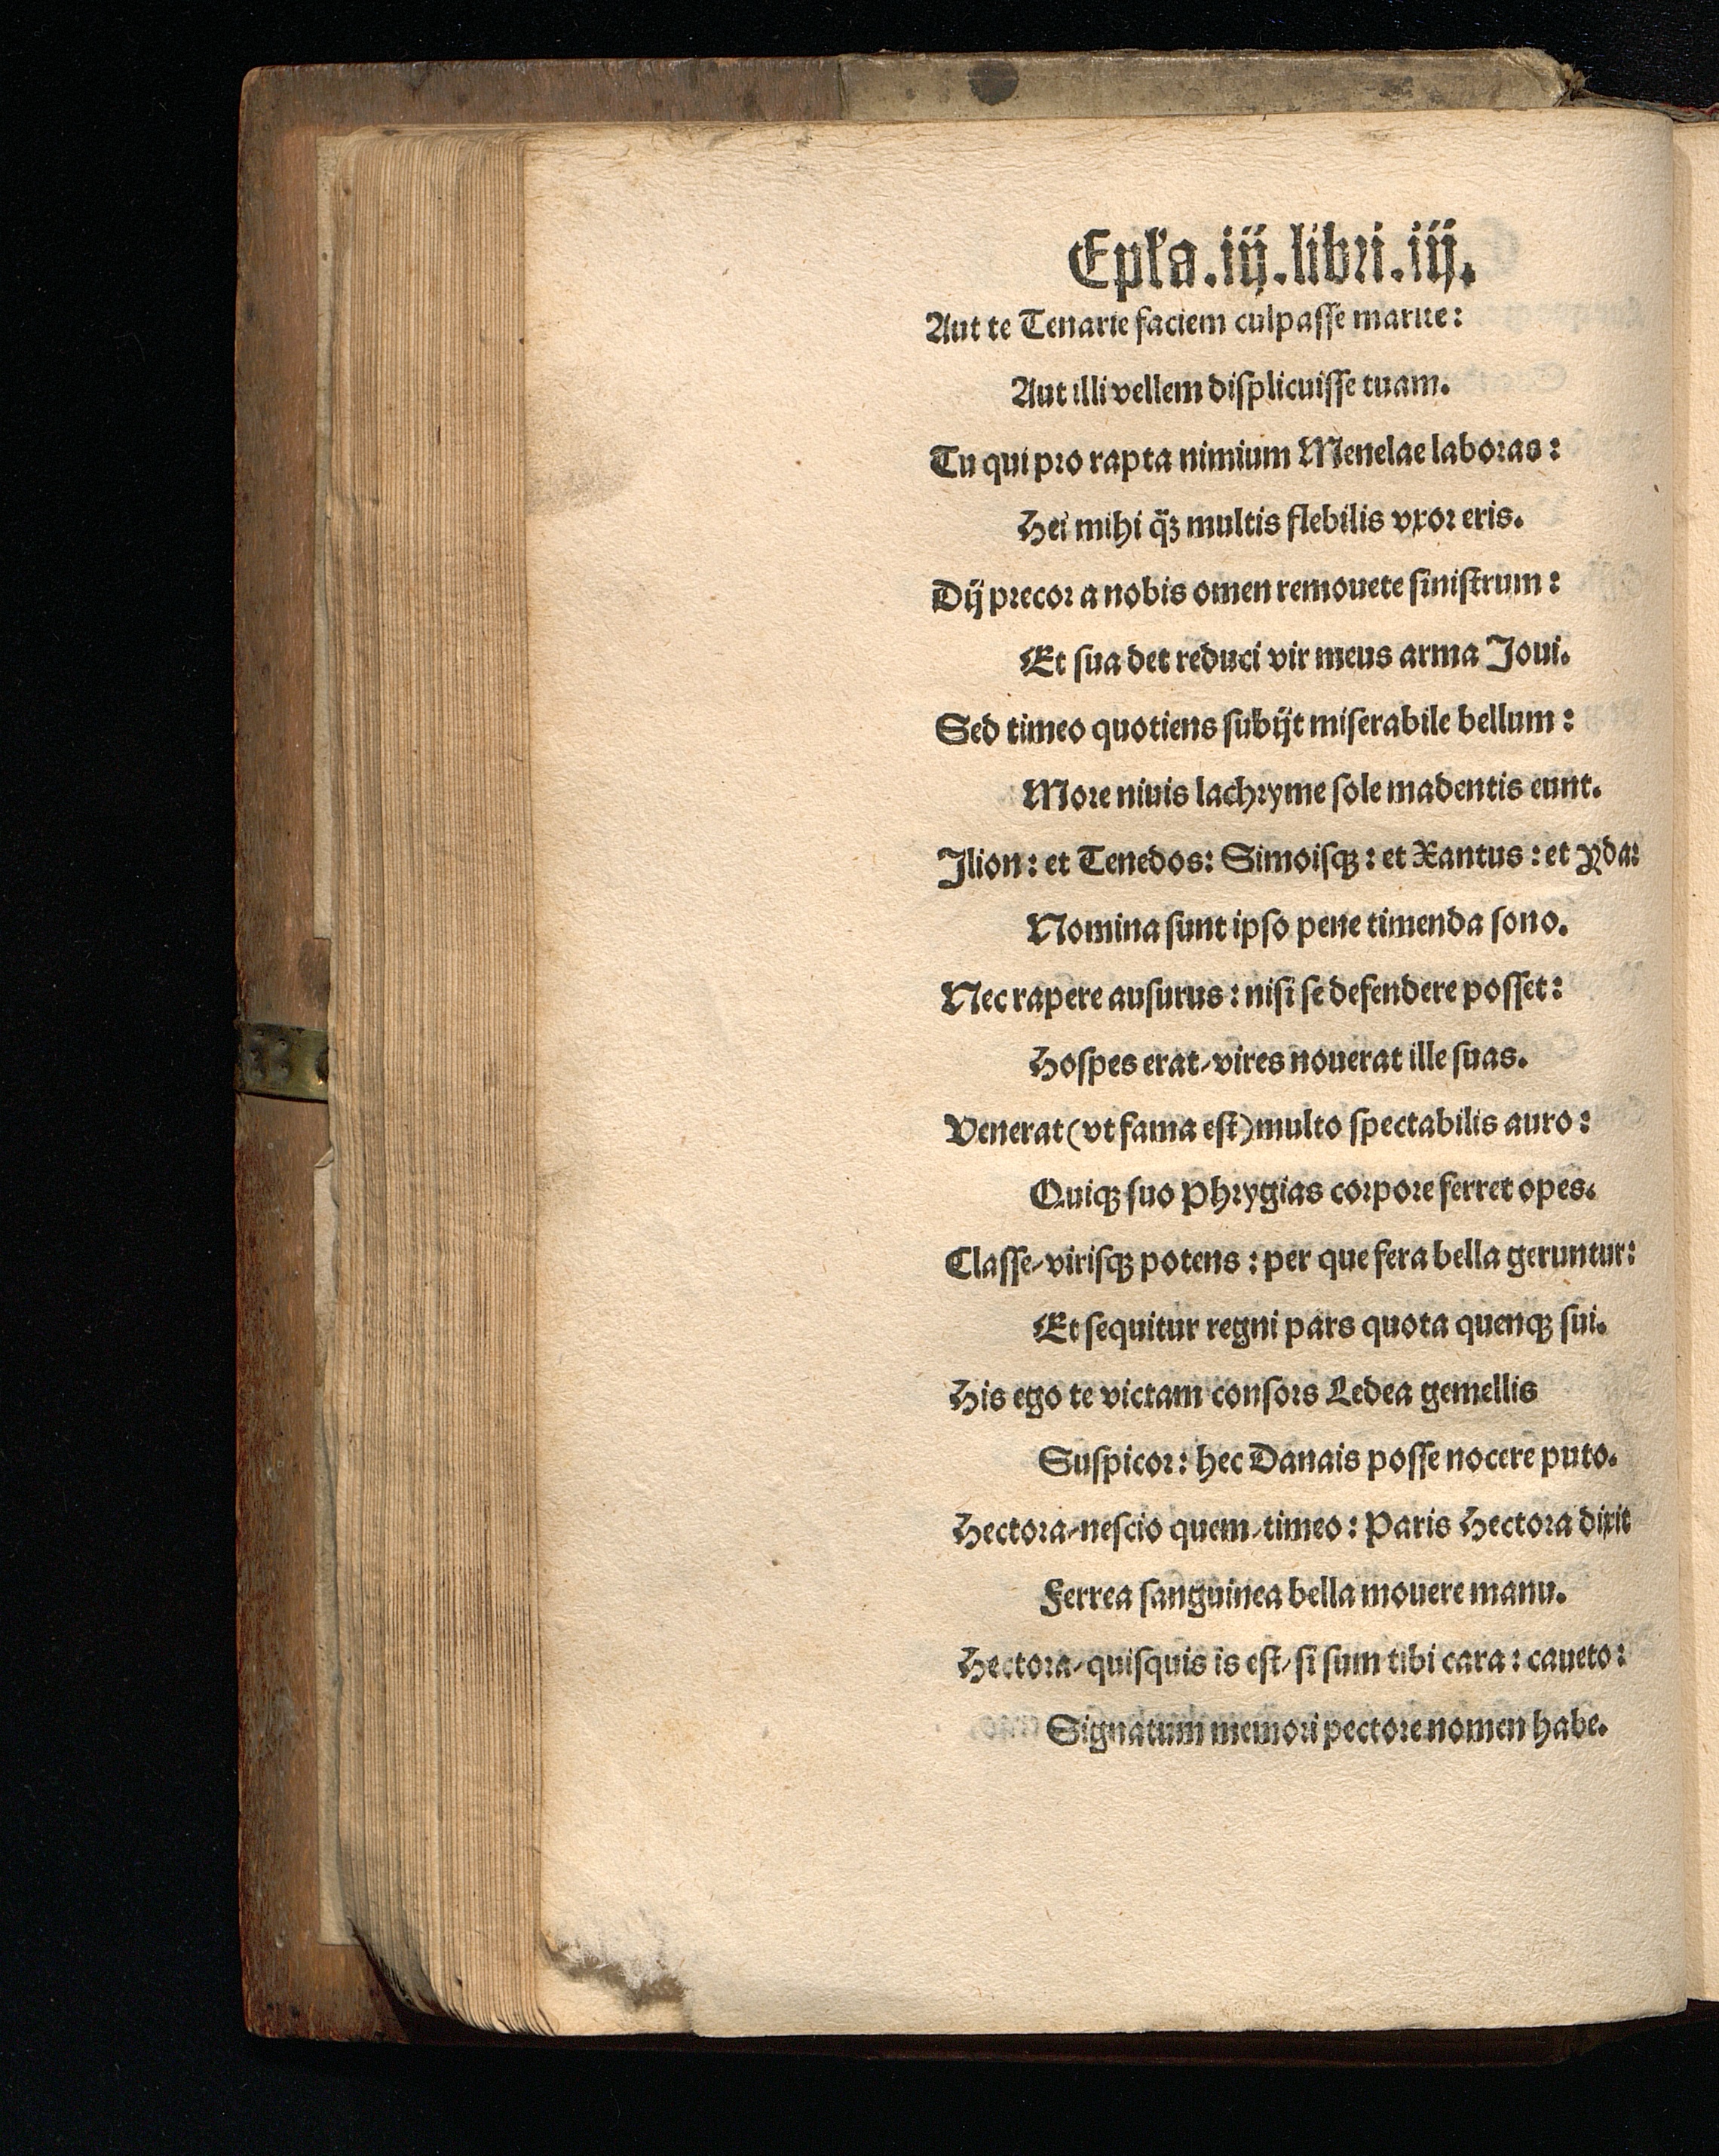 Epl'a.iij.libri.iij.
Aut te Tenarie faciem culpasse marite:
Aut illi vellem displicuisse tuam.
Tu qui pro rapta nimium Menelae laboras:
Hei mihi q̈ꝫ multis flebilis vxor eris.
Dij precor a nobis omen remouete sinistrum:
Et sua det reduci vir meus arma Joui.
Sed timeo quotiens subijt miserabile bellum:
More niuis lachryme sole madentis eunt.
Jlion: et Tenedos: Simoisqꝫ: et Xantus: et Yda:
Nomina sunt ipso pene timenda sono.
Nec rapere ausurus: nisi se defendere posset:
Hospes erat/vires nouerat ille suas.
Venerat (vt fama est) multo spectabilis auro:
Quiqꝫ suo Phrygias corpore ferret opes.
Classe/virisqꝫ potens: per que fera bella geruntur:
Et sequitur regni pars quota quenqꝫ sui.
His ego te victam consors Ledea gemellis
Suspicor: hec Danais posse nocere puto.
Hectora/nescio quem/timeo: Paris Hectora dixit
Ferrea sanguinea bella mouere manu.
Hectora/quisquis is est/si sum tibi cara: caueto:
Signatum memori pectore nomen habe.